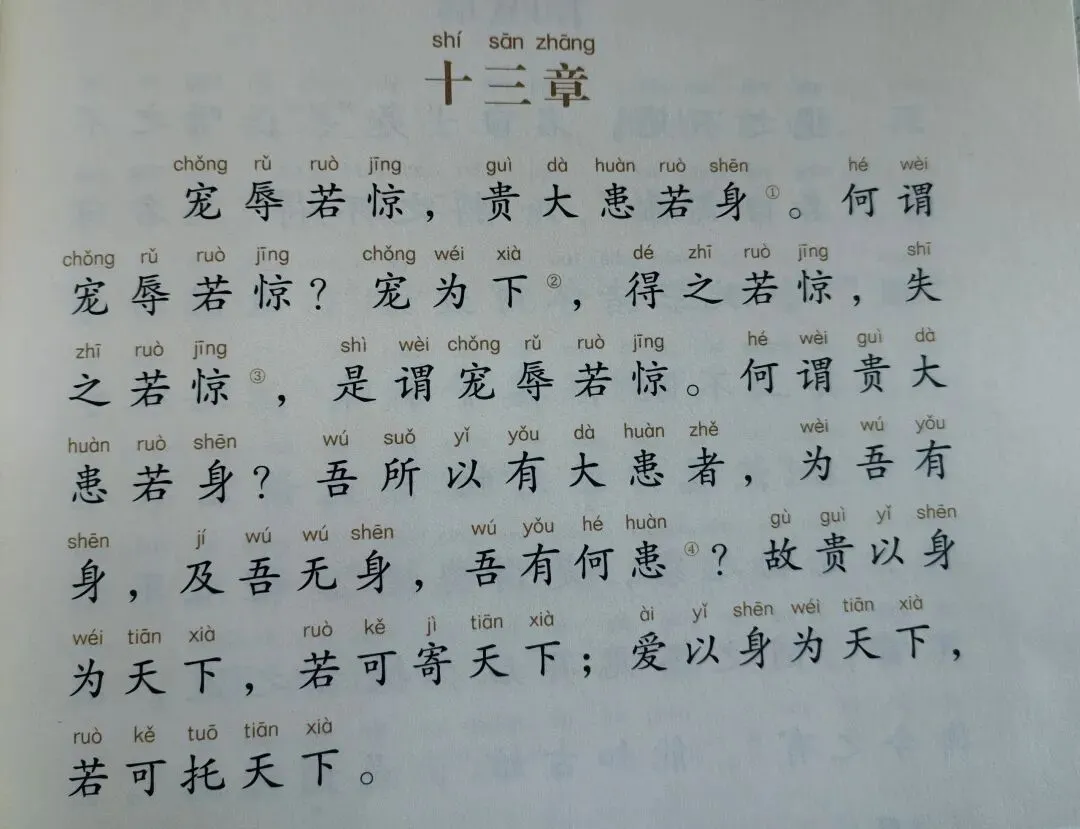 shí sān zhāng
十三章
chǒng rǔ ruò jīng guì dà huàn ruò shēn hé wèi
宠辱若惊，贵大患若身①。何谓
chǒng rǔ ruò jīng chǒng wéi xià dé zhī ruò jīng shī
宠辱若惊？宠为下②，得之若惊，失
zhī ruò jīng shì wèi chǒng rǔ ruò jīng hé wèi guì dà
之若惊③，是谓宠辱若惊。何谓贵大
huàn ruò shēn wú suǒ yǐ yǒu dà huàn zhě wèi wú yǒu
患若身？吾所以有大患者，为吾有
shēn jí wú wú shēn wú yǒu hé huàn gù guì yǐ shēn
身，及吾无身，吾有何患④？故贵以身
wéi tiān xià ruò kě jì tiān xià ài yǐ shēn wéi tiān xià
为天下，若可寄天下；爱以身为天下，
ruò kě tuō tiān xià
若可托天下。